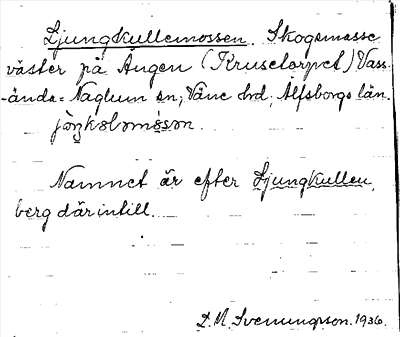 Ljungkullemossen. Skogsmosse
väster på Ängen (Krusetorpet) Vass-
-ända-Naglum sn, Väne hd, Älfsborgs län.
jòŋkələmósən.
Namnet är efter Ljungkullen,
berg därintill.
D. M. Svenungsson. 1936.